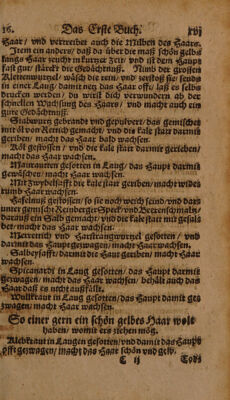 16. Das Erste Buch. xvj
Haar / vnd vertreibet auch die Milben des Haars.
Item ein anders / daß da über die maß schön gelbs
langs Haar zeucht in kurtzer Zeit / vnd ist dem Haupt
fast gut / stärckt die Gedächtnuß. Nimb der grossen
Klettenwurtzel / wäsch die rein / vnd zerstoß sie
in eine Laug / damit netz das Haar offt / laß es selbs
drucken werden / du wirst dich verwundern ab der
schnellen Wachsung des Haars / vnd macht auch ein
gute Gedächtnuß.
gebrandt vnd gepulvert / das gemischet
mit öl von Rettich gemacht / vnd die kale statt darmit
gerieben / macht Haar wachsen.
Köl gestossen / vnd die kale statt darmit gerieben /
macht das Haar wachsen.
in Laug / das Haupt darmit
gewäschen / macht Haar wachsen.
Mit Zwybelsafft die kale stat geriben / macht wider
rund Haar wachsen.
Haselnuß gestossen / so sie noch weich seind / vnd dar
unter gemischt Reinbergen Speck /
darauß ein Salb gemacht / vnd die kale statt mit gesal
bet / macht Haar wachsen.
Merrettich vnd gesotten / vnd
darmit das Haupt gezwagen / macht Haar wachsen.
Salbeysafft / darmit die Haut geriben / macht Haar
wachsen.
Spicanardi in Laug gesotten / das Haupt darmit
gezwagen / macht das Haar wachsen / behält auch das
Haar daß es nicht außfällt.
Wullkraut in Laug gesotten / das Haupt damit ge
zwagen / macht Haar wachsen.
So einer gern ein schön gelbes Haar wolt
haben / womit ers ziehen mög.
in Laugen gesotten / vnd damit das Haupt
offt gezwagen / macht das Haar schön vnd gelb.
C ij